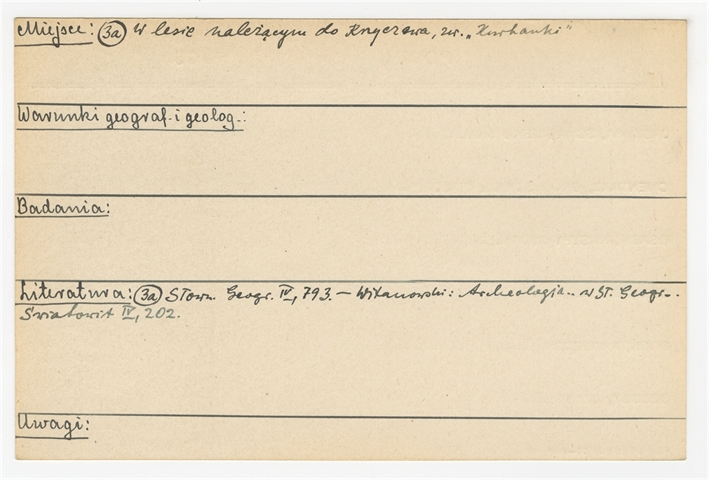 Miejsce: (3a) W lesie należącym do Knyczewa, zw. „Kurhanki"
Warunki geograf. i geolog.:
Badania:
Literatura: (3a) Słown. Geogr. IV, 793. – Witanowski: Archeologia.. w Sł. Geogr..
Światowit IV, 202.
Uwagi: